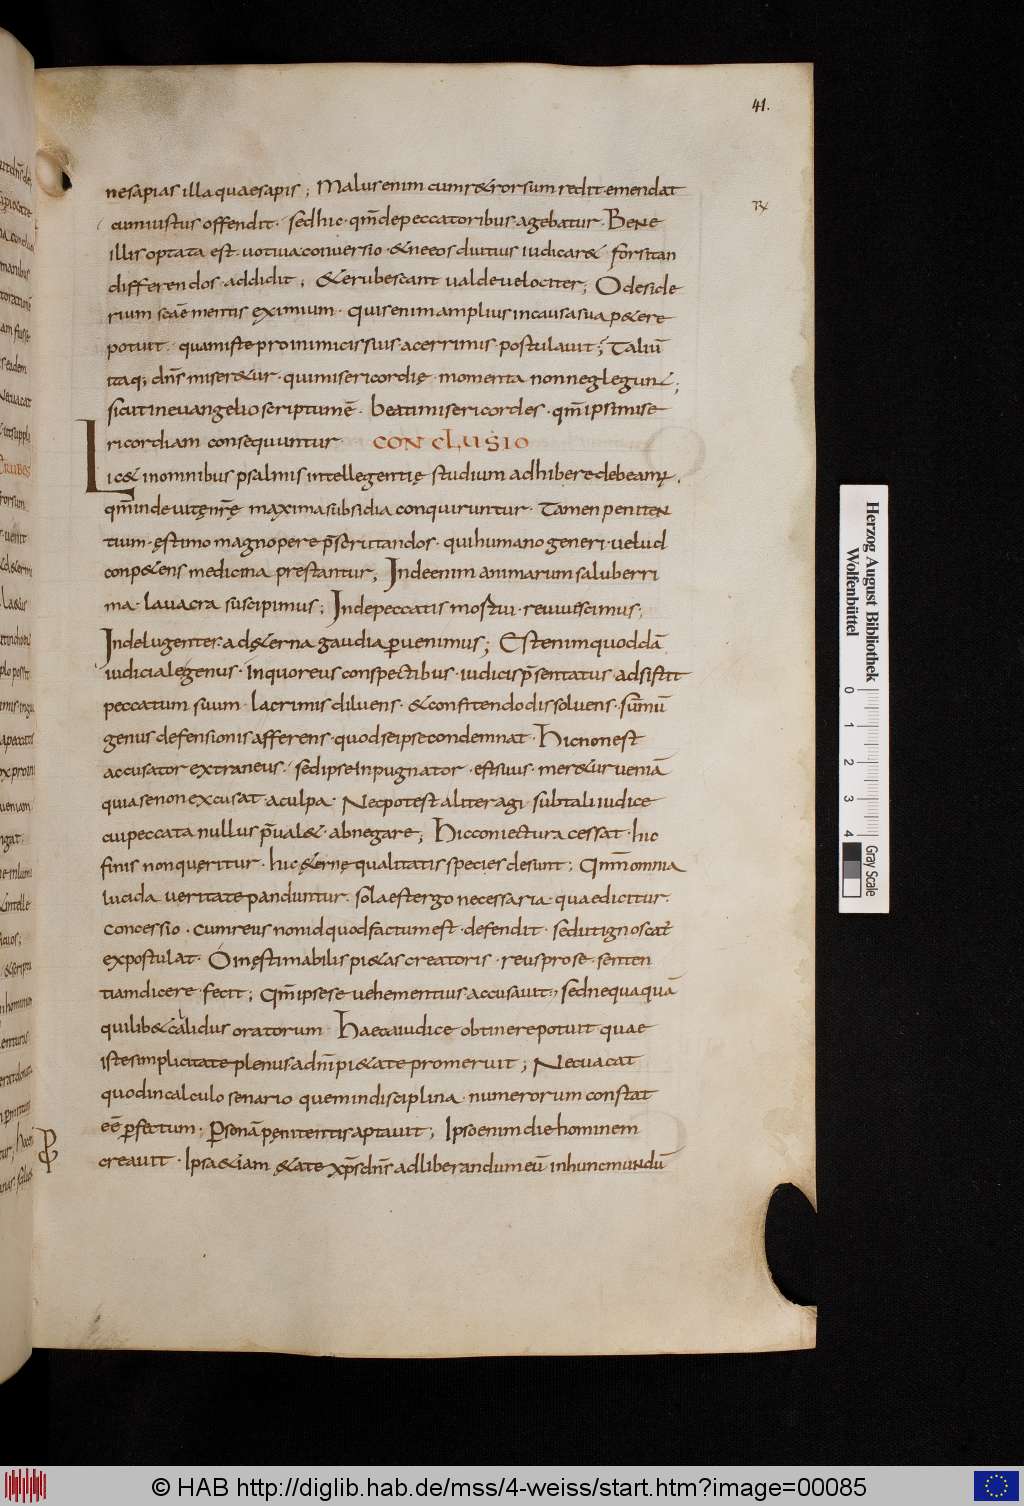 41.
ne sapias illa quae sapis ; Malus enim cum r&rorsum redit · emendat
cum iustus offendit · sed hic · qm̄ de peccatoribus agebatur · BENE
illis optata est · uotiua conuersio · & ne eos diutius iudicar& forsitan
differendos · addidit ; & erubescant ualde uelociter ; O deside
rium scāe mentis eximium · quis enim amplius in causa sua p&ere
potuit · quam iste pro inimicis suis acerrimis postulauit ; Taliū
itaq; dn̄s miser&ur · qui misericordię · momenta non neglegun& ;
sicut in euangelio scriptum ē · beati misericordes · qm̄ ipsi mise
ricordiam consequuntur CONCLUSIO
Lic& in omnibus psalmis intellegentię studium adhibere debeam; ·
qm̄ inde uitę nr̄ę maxima subsidia conquiruntur · Tamen peniten
tium · ęstimo magnopere p̄scrutandos · qui humano generi · uelud
conp&ens medicina prestantur ; Inde enim animarum saluberri
ma · lauacra suscipimus ; Inde peccatis mortui · reuiuiscimus ;
Inde lugentes · ad &erna gaudia puenimus ; Est enim quoddā
iudiciale genus · in quo reus conspectibus · iudicis p̄sentatus · adsistit
peccatum suum · lacrimis diluens · & confitendo dissoluens · sūmū
genus defensionis afferens · quod se ipse condemnat · Hic non est
accusator extraneus · sed ipse inpugnator · est suus · mer&ur ueniā
quia se non excusat a culpa · Nec potest aliter agi sub tali iudice
cui peccata nullus p̄ual& · abnegare ; Hic coniectura cessat · hic
finis non quęritur · hic &ernę qualitatis species desunt ; Qm̄ omnia
lucida ueritate panduntur · sola est ergo necessaria · quae dicitur ·
concessio · cum reus non id quod factum est · defendit · sed ut ignoscat̄
expostulat · O inęstimabilis pi&as creatoris · reus pro se · senten
tiam dicere · fecit ; Qm̄ ipse se uehementius accusauit ; sed nequaquā
quilib& callidus oratorum Haec a iudice obtinere potuit quae
iste simplicitate plenus a dn̄i pi&ate promeruit ; Nec uacat
quod in calculo senario quem in disciplina · numerorum constat
eē pfectum · Psonā pęnitentis aptauit ; Ipso enim die hominem
creauit · Ipsa &iam &ate xp̄s dn̄s ad liberandum eū in hunc mundū
Herzog August Bibliothek
Wolfenbüttel
0 1 2 3 4
Gray Scale
© HAB http://diglib.hab.de/mss/4-weiss/start.htm?image=00085